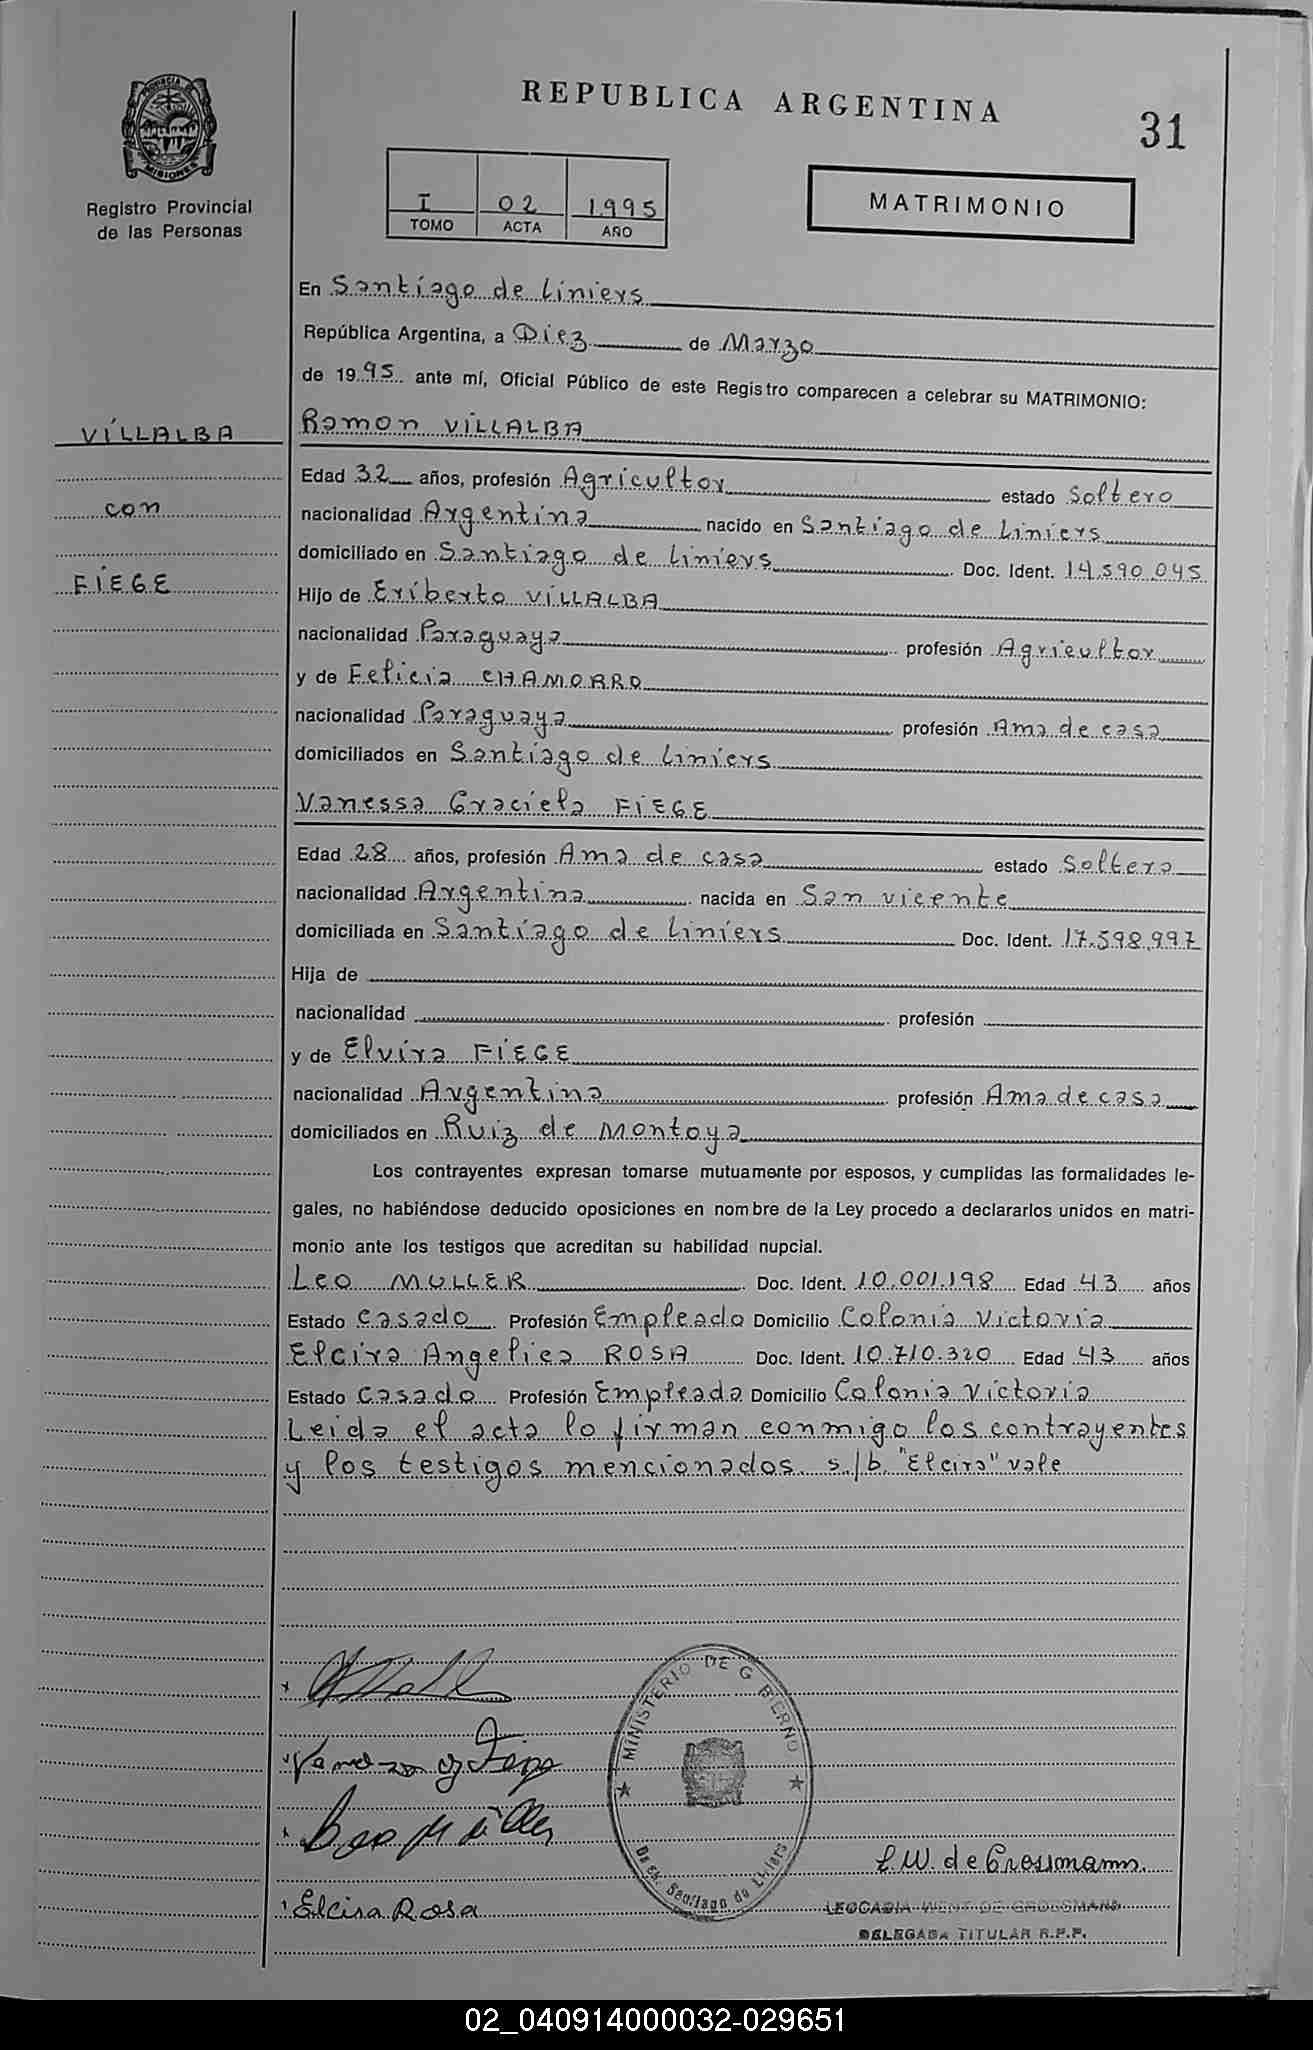 REPUBLICA ARGENTINA
31
PROVINCIA DE
MISIONES
Registro Provincial
de las Personas
I 02 1995
TOMO ACTA AÑO
MATRIMONIO
En Santiago de Liniers
República Argentina, a Diez de Marzo
de 1995 ante mí, Oficial Público de este Registro comparecen a celebrar su MATRIMONIO:
VILLALBA
con
FIEGE
Ramon VILLALBA
Edad 32 años, profesión Agricultor estado Soltero
nacionalidad Argentina nacido en Santiago de Liniers
domiciliado en Santiago de Liniers Doc. Ident. 14.590.045
Hijo de Eriberto VILLALBA
nacionalidad Paraguaya profesión Agricultor
y de Felicia CHAMORRO
nacionalidad Paraguaya profesión Ama de casa
domiciliados en Santiago de Liniers
Vanessa Graciela FIEGE
Edad 28 años, profesión Ama de casa estado Soltera
nacionalidad Argentina nacida en San Vicente
domiciliada en Santiago de Liniers Doc. Ident. 17.598.997
Hija de
nacionalidad profesión
y de Elvira FIEGE
nacionalidad Argentina profesión Ama de casa
domiciliados en Ruiz de Montoya
Los contrayentes expresan tomarse mutuamente por esposos, y cumplidas las formalidades le-
gales, no habiéndose deducido oposiciones en nombre de la Ley procedo a declararlos unidos en matri-
monio ante los testigos que acreditan su habilidad nupcial.
Leo MULLER Doc. Ident. 10.001.198 Edad 43 años
Estado Casado Profesión Empleado Domicilio Colonia Victoria
Elcira Angelica ROSA Doc. Ident. 10.710.320 Edad 43 años
Estado Casado Profesión Empleada Domicilio Colonia Victoria
Leida el acta lo firman conmigo los contrayentes
y los testigos mencionados. s/b. "Elcira" vale
MINISTERIO DE G BIERNO
Santiago de Liniers
L.W. de Grossmann.
Elcira Rosa
LEOCADIA WENT DE GROSSMANN
DELEGADA TITULAR R.P.P.
02_040914000032-029651